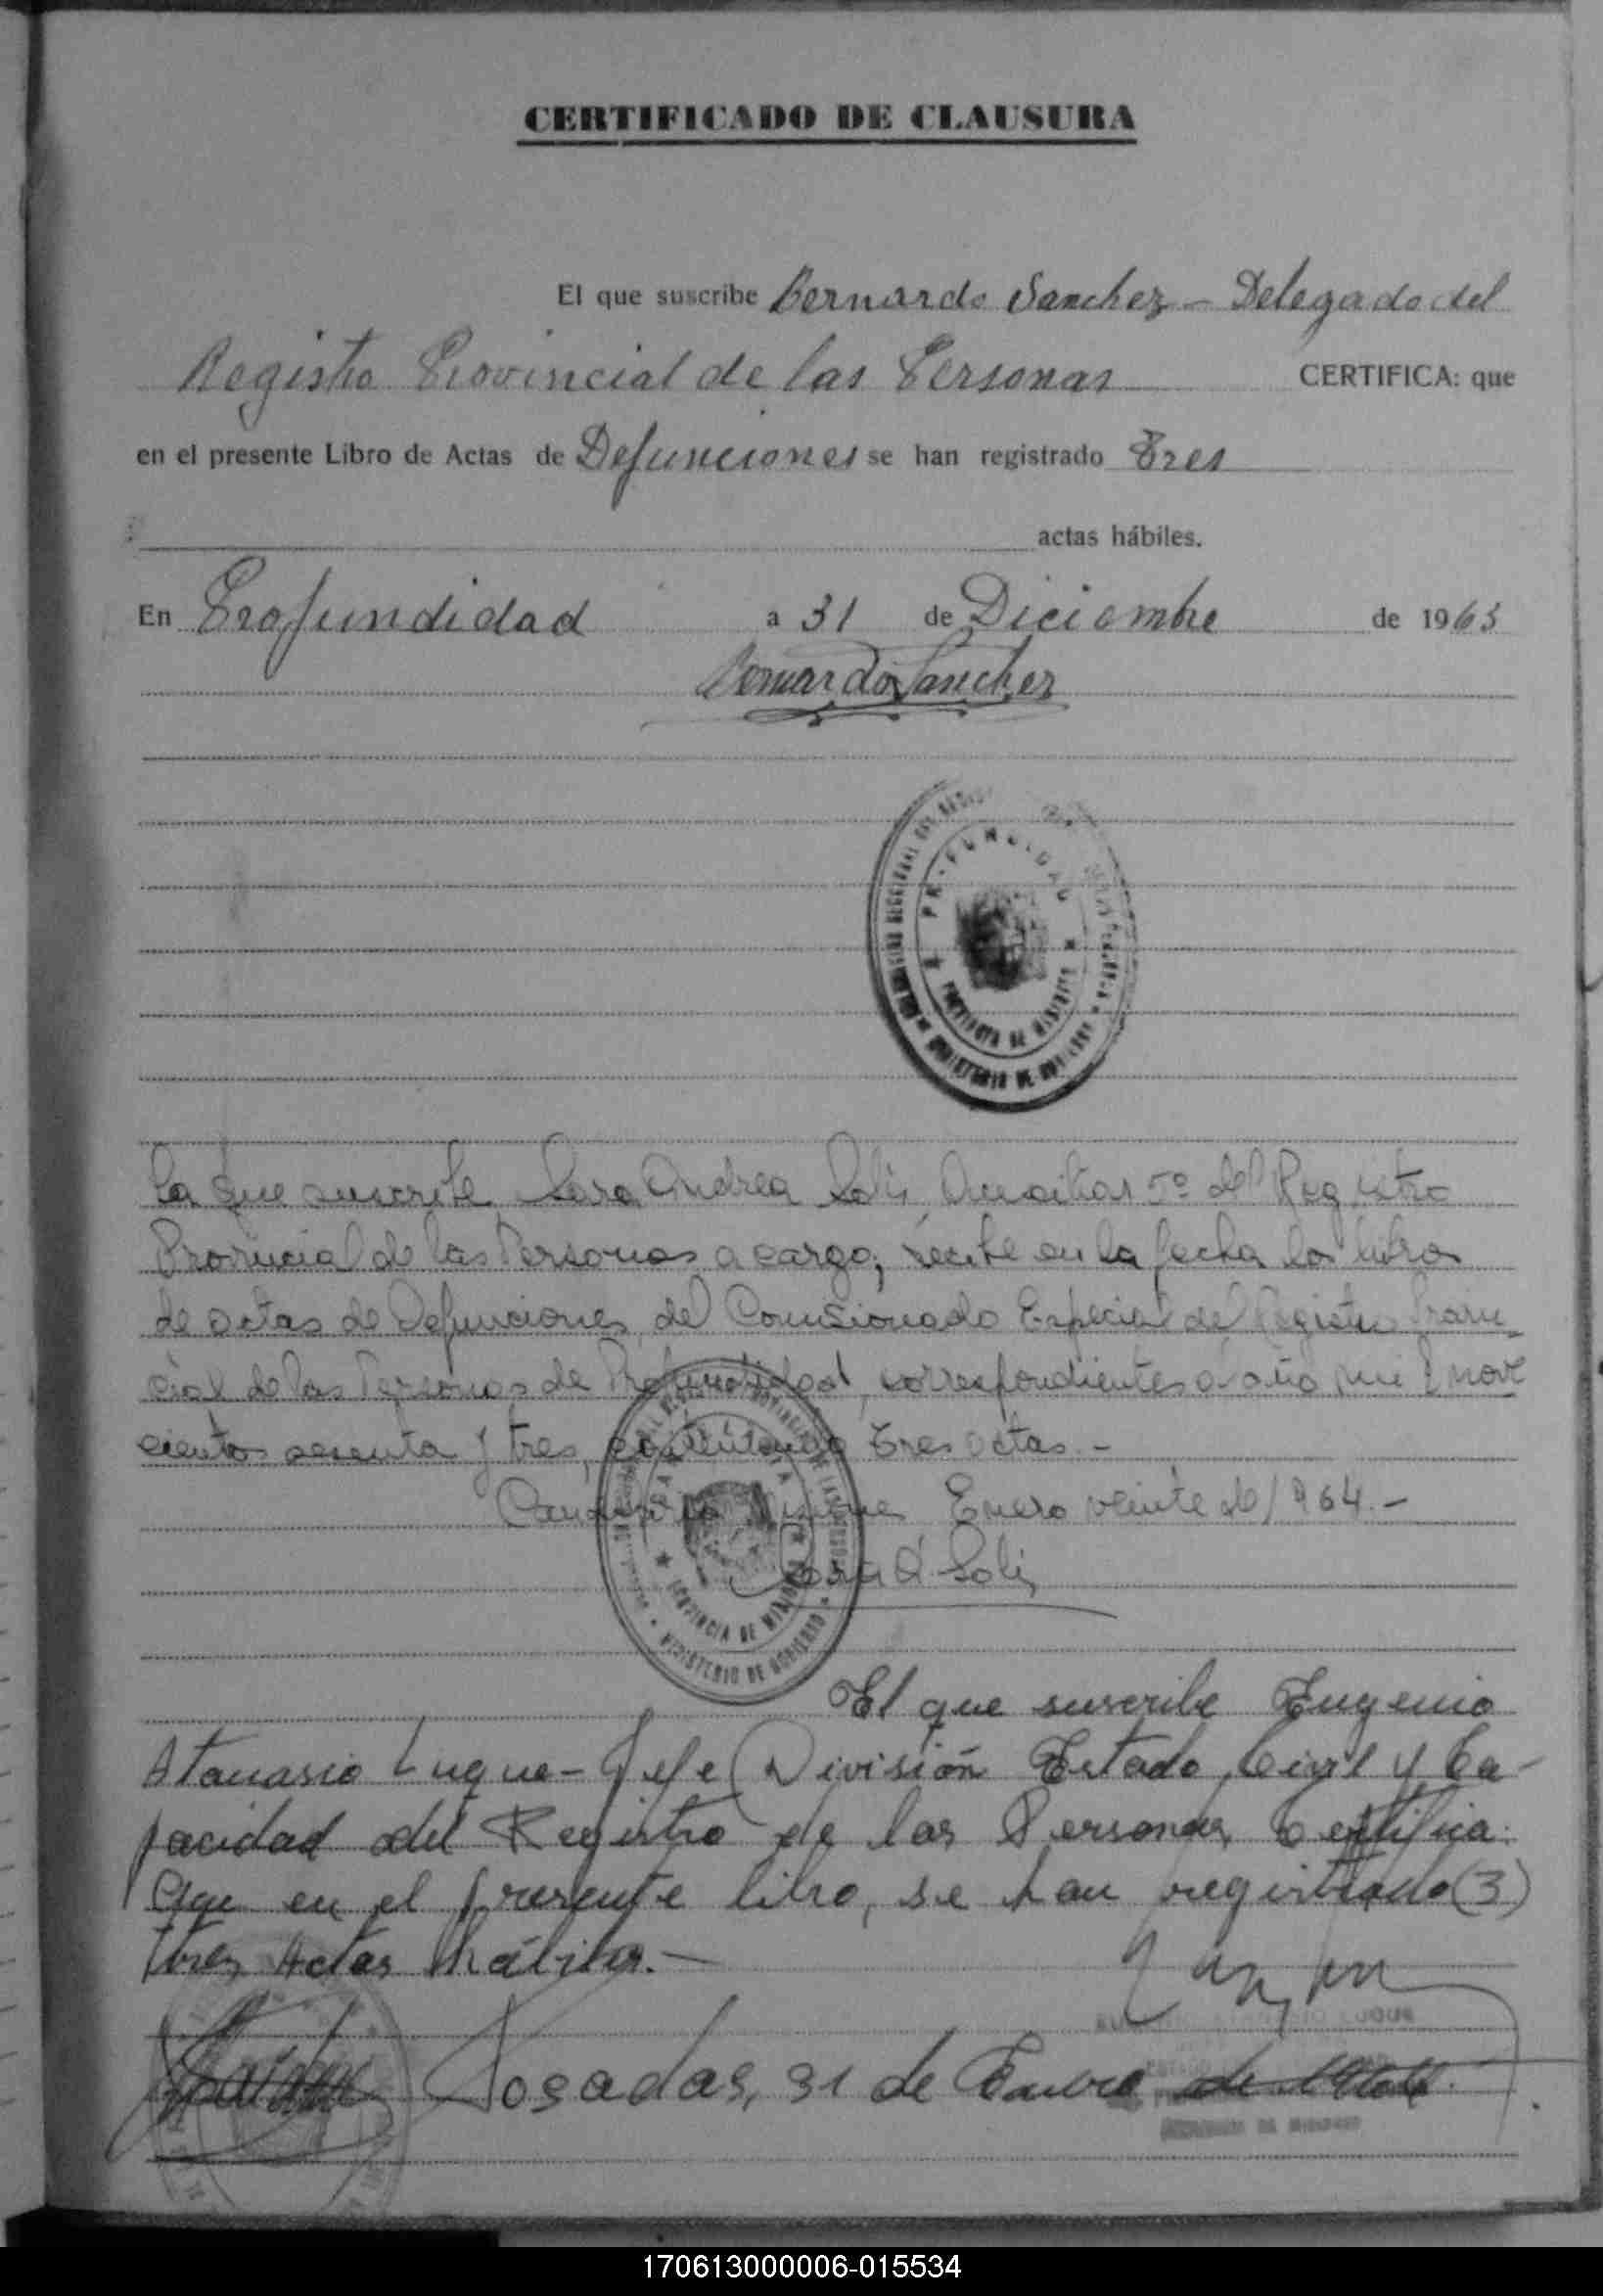 CERTIFICADO DE CLAUSURA
El que suscribe Bernardo Sanchez - Delegado del
Registro Provincial de las Personas CERTIFICA: que
en el presente Libro de Actas de Defunciones se han registrado Tres
actas hábiles.
En Profundidad a 31 de Diciembre de 1963
Bernardo Sanchez
PROVINCIA DE MISIONES
MINISTERIO DE GOBIERNO
La que suscribe Sara Andrea Solis Auxiliar 5º del Registro
Provincial de las Personas a cargo; recibe en la fecha los libros
de actas de Defunciones del Comisionado Especial del Registro Provin-
cial de las Personas de Profundidad, correspondientes a año mil nove
cientos sesenta y tres, conteniendo tres actas.-
Candelaria Misiones Enero veinte de 1964.-
Sara A Solis
PROVINCIA DE MISIONES
MINISTERIO DE GOBIERNO
El que suscribe Eugenio
Atanasio Luque - Jefe División Estado Civil y Ca-
pacidad del Registro de las Personas, Certifica:
Que en el presente libro, se han registrado (3)
tres Actas hábiles.-
EUGENIO ATANASIO LUQUE
Posadas, 31 de Enero de 1964.
170613000006-015534